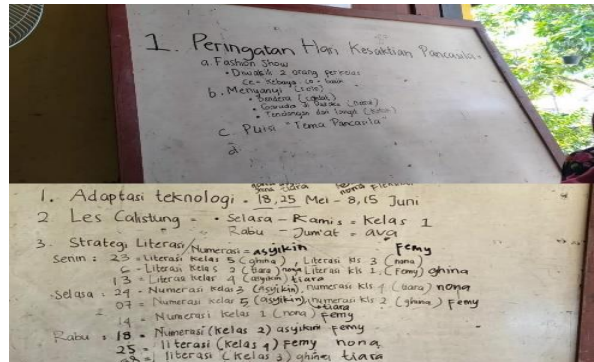 1. Peringatan Hari Kesaktian Pancasila.
a. Fashion Show
• Diwakili 2 orang perkelas
Ce = Kebaya, Co =
b. Menyanyi (Solo)
• Bendera (Coklat)
• Garuda di
• Tendangan dari langit
c. Puisi "Tema Pancasila"
d.
1. Adaptasi teknologi = 18, 25 Mei - 8, 15 Juni
2 Les Calistung = • Selasa - Kamis = Kelas 1
Rabu - Jum'at = ava
3. Strategi Literasi/Numerasi = asyikin Femy
Senin : 23 = Literasi kelas 5 (ghina), Literasi kls 3 (nona)
6 - Literasi kelas 2 (tiara) nona Literasi kls 1 (Femy) ghina
13 = Literasi kelas 4 (asyikin) tiara
Selasa : 24 - Numerasi kelas 3 (Asyikin), numerasi kls 4 (tiara) nona
07 = Numerasi kelas 5 (asyikin), numerasi kls 2 (ghina) Femy
tiara
14 = Numerasi kelas 1 (nona) Femy
Rabu : 18 = Numerasi (kelas 2) asyikin Femy
25 = literasi (kelas 4) Femy nona
literasi (kelas 3) ghina tiara